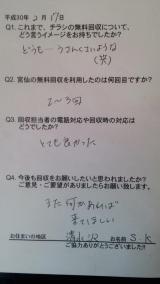 平成30年 2月 17日
Q1. これまで、チラシの無料回収について、
どう言うイメージをお持ちでしたか?
どうも… うさんくさいような
(笑)
Q2. 宮仙の無料回収を利用したのは何回目ですか?
2〜3回
Q3. 回収担当者の電話対応や回収時の対応は
どうでしたか?
とても良かった
Q4. 今後も回収をお願いしたいと思われましたか?
ご意見・ご要望がありましたらお願い致します。
また何かあれば
来てほしい
お住まいの地区 清水沢 お名前 S.K
ご協力ありがとうございました!!